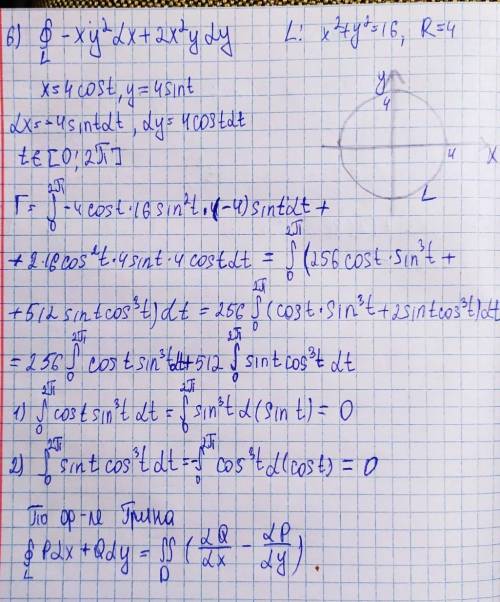 6) ∮_L -xy²dx+2x²ydy    L: x²+y²=16, R=4
x=4cost, y=4sint
dx=-4sintdt, dy=4costdt
t∈[0;2π]
y
4
4
x
L
Г=∫_0^{2π} -4cost·16sin²t·(-4)sintdt+
+2·16cos²t·4sint·4costdt = ∫_0^{2π} (256cost·sin³t+
+512sintcos³t)dt = 256∫_0^{2π} (cost·sin³t+2sintcos³t)dt
=256∫_0^{2π} costsin³tdt+512∫_0^{2π} sintcos³tdt
1) ∫_0^{2π} costsin³tdt = ∫_0^{2π} sin³td(sint)=0
2) ∫_0^{2π} sintcos³tdt=-∫_0^{2π} cos³td(cost)=0
По ф-ле Грина
∮_L Pdx+Qdy = ∬_D (dQ/dx - dP/dy).